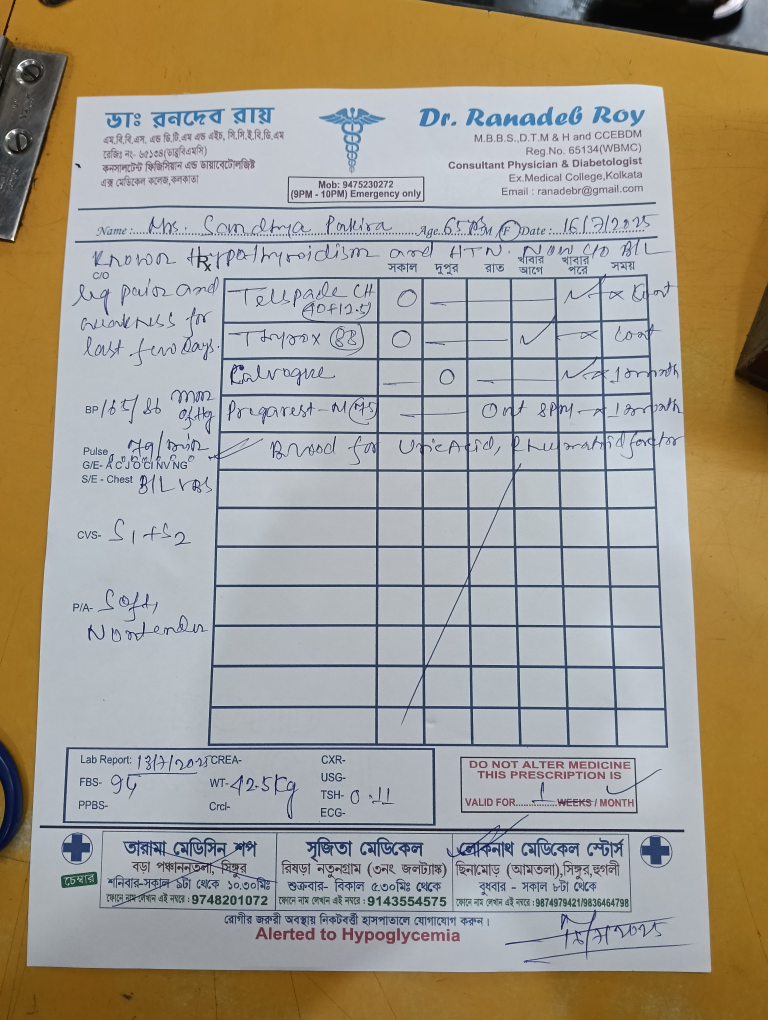 ডাঃ রনদেব রায়
এম.বি.বি.এস, এন্ড ডি.টি.এম এন্ড এইচ, সি.সি.ই.বি.ডি.এম
রেজিঃ নং- ৬৫১৩৪(ডাব্লুবিএমসি)
কনসালটেন্ট ফিজিসিয়ান এন্ড ডায়াবেটোলজিষ্ট
এক্স মেডিকেল কলেজ,কলকাতা
Mob: 9475230272
(9PM - 10PM) Emergency only
Dr. Ranadeb Roy
M.B.B.S.,D.T.M & H and CCEBDM
Reg.No. 65134(WBMC)
Consultant Physician & Diabetologist
Ex.Medical College,Kolkata
Email : ranadebr@gmail.com
Name :... Mrs. Sandhya Pakira Age. 65 M (F) Date : 16/7/2025
Known Hypothyroidism and HTN. Now C/O B/L
Rx সকাল দুপুর রাত খাবার আগে খাবার পরে সময়
C/O
leg pain and
weakness for
last few days.
Telspade CH (40+12.5) O — — ✓ — x Cont
Thyrox (88) O — — ✓ — x Cont
— O — ✓ — x 1 month
— — 8PM — x 1 month
Blood for Uric Acid, Rheumatoid factor
BP 165/86 mm of Hg
Pulse 79/min
G/E- A C J O CI NV NG
S/E - Chest B/L VBS
CVS- S1+S2
P/A- Soft,
Nontender
Lab Report: 13/7/2025 CREA- CXR-
FBS- 94 WT- 42.5 Kg USG-
PPBS- Crcl- TSH- 0.11
ECG-
DO NOT ALTER MEDICINE
THIS PRESCRIPTION IS
VALID FOR...1...WEEKS / MONTH
চেম্বার
তারামা মেডিসিন শপ
বড়া পঞ্চাননতলা, সিঙ্গুর
শনিবার-সকাল ৯টা থেকে ১০.৩০মিঃ
ফোনে নাম লেখান এই নম্বরে : 9748201072
সৃজিতা মেডিকেল
রিষড়া নতুনগ্রাম (৩নং জলট্যাঙ্ক)
শুক্রবার- বিকাল ৫.৩০মিঃ থেকে
ফোনে নাম লেখান এই নম্বরে : 9143554575
লোকনাথ মেডিকেল স্টোর্স
ছিনামোড় (আমতলা),সিঙ্গুর,হুগলী
বুধবার - সকাল ৮টা থেকে
ফোনে নাম লেখান এই নম্বরে :9874979421/9836464798
রোগীর জরুরী অবস্থায় নিকটবর্তী হাসপাতালে যোগাযোগ করুন।
Alerted to Hypoglycemia